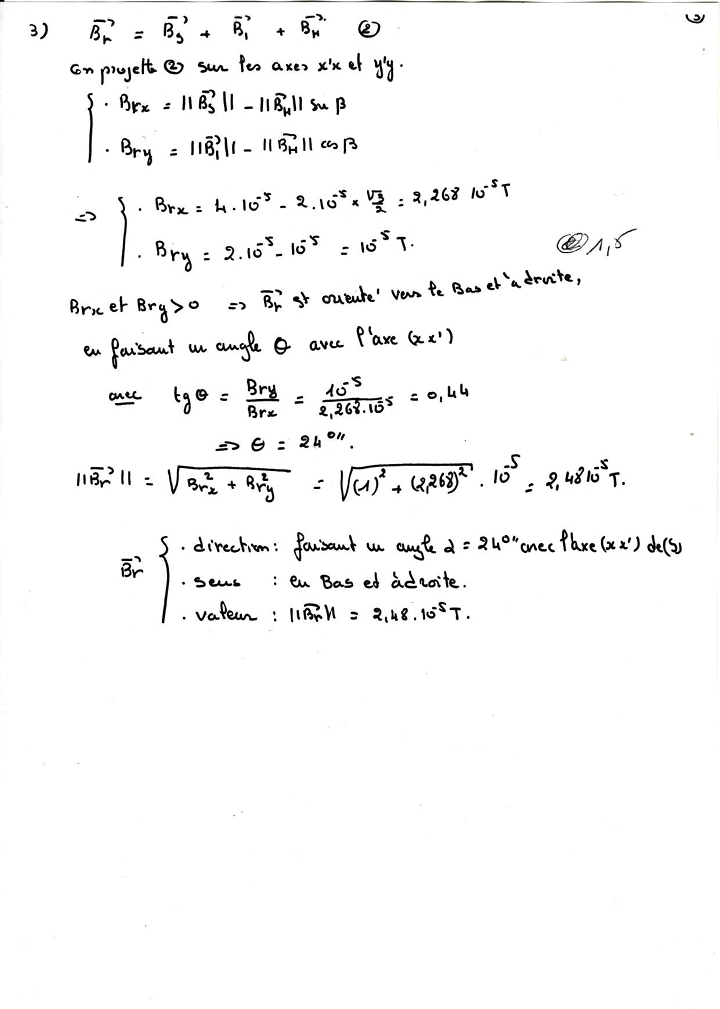 3) B⃗r = B⃗s + B⃗1 + B⃗H ②
On projette ② sur les axes x'x et y'y.
{ . Brx = ||B⃗s|| - ||B⃗H|| sin β
. Bry = ||B⃗1|| - ||B⃗H|| cos β
=> { . Brx = 4.10⁻⁵ - 2.10⁻⁵ × √3/2 = 2,268 10⁻⁵ T
. Bry = 2.10⁻⁵ - 10⁻⁵ = 10⁻⁵ T.
1,5
Brx et Bry > 0 => B⃗r est orienté vers le Bas et à droite,
en faisant un angle θ avec l'axe (xx')
avec tgθ = Bry/Brx = 10⁻⁵/2,268.10⁻⁵ = 0,44
=> θ = 24°".
||B⃗r|| = √(Brx² + Bry²) = √((1)² + (2,268)²) . 10⁻⁵ = 2,48 10⁻⁵ T.
B⃗r { . direction : faisant un angle α = 24°" avec l'axe (xx') de (S)
. sens : en Bas et à droite.
. valeur : ||B⃗r|| = 2,48.10⁻⁵ T.